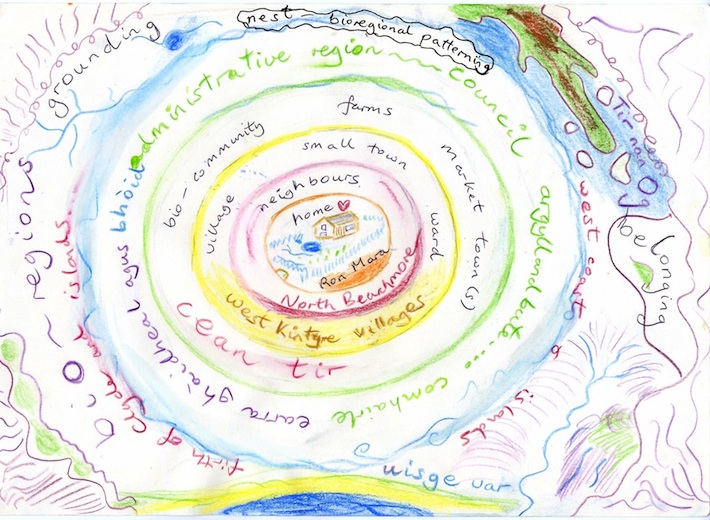 nest bioregional patterning
grounding
administrative region council
argyllandbute....
comhairle
earra ghàidheal agus bhòid
farms
bio-community
market town(s)
small town
village
ward
neighbours
home
Ron Mara
North Beachmore
West Kintyre Villages
cean tir
Tir nan Og
belonging
west coast
islands
bio regions
firth of clyde and islands...
uisge uar